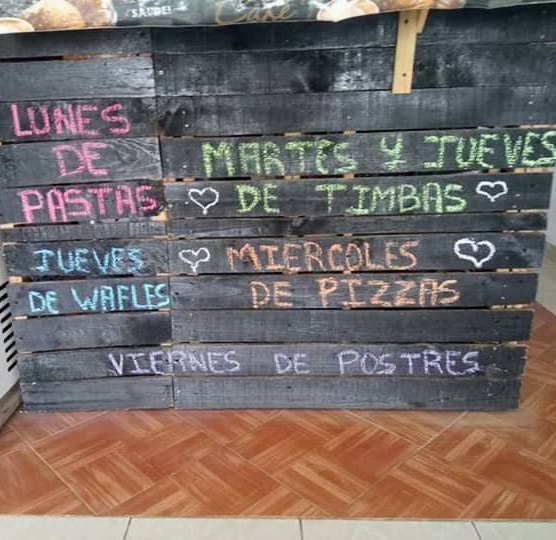 SALUDE!
Cake
LUNES
DE
PASTAS
MARTES Y JUEVES
DE TIMBAS
JUEVES
DE WAFLES
MIERCOLES
DE PIZZAS
VIERNES DE POSTRES